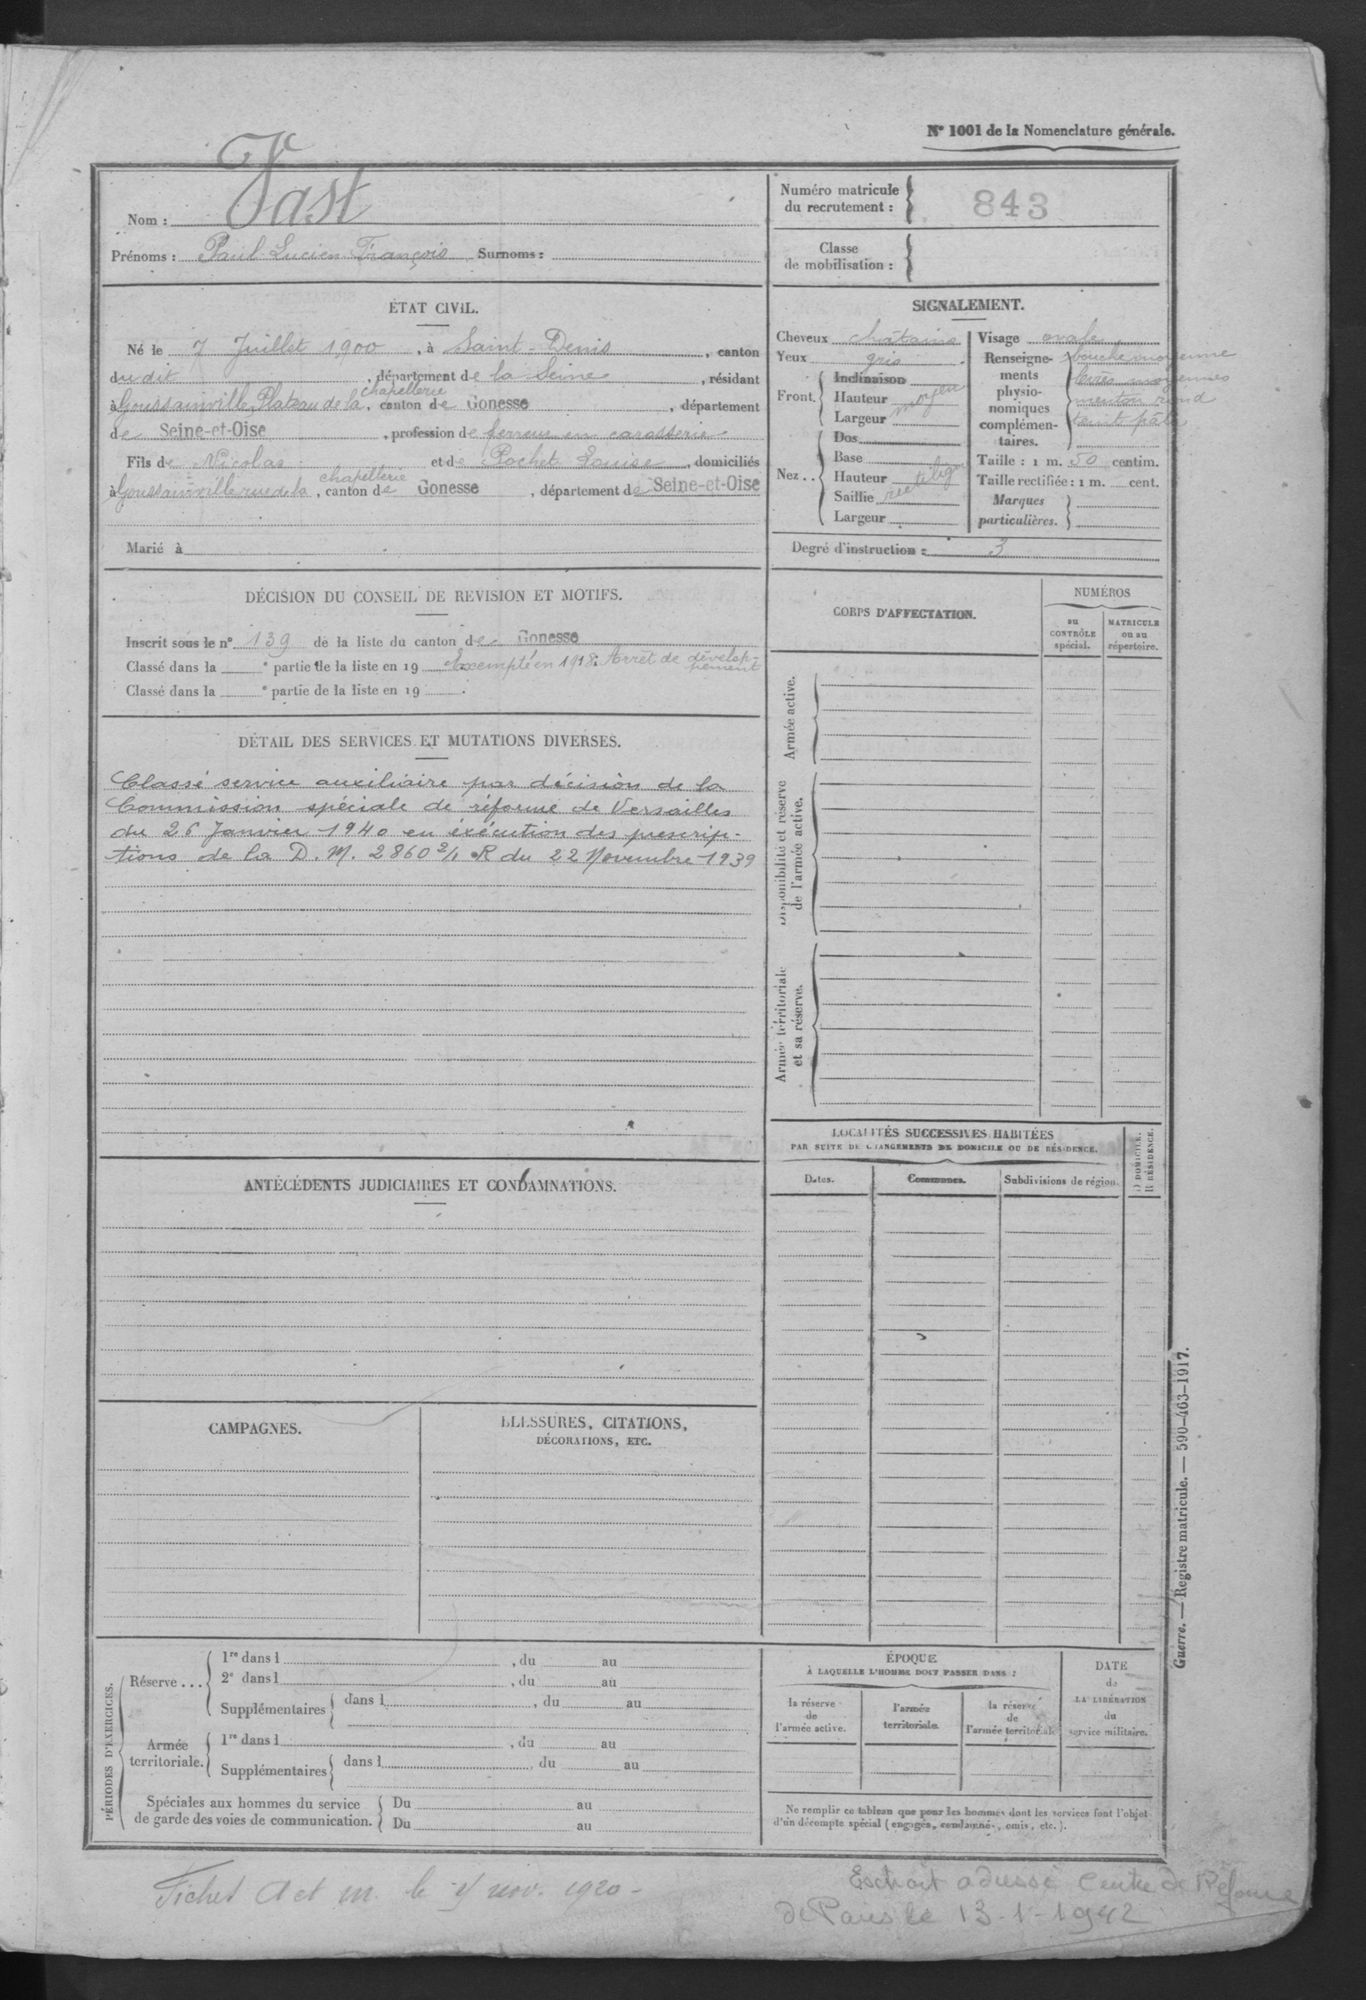 N° 1001 de la Nomenclature générale.
Nom : Vast
Prénoms : Paul Lucien François Surnoms :
Numéro matricule
du recrutement : 843
Classe
de mobilisation :
ÉTAT CIVIL.
Né le 7 Juillet 1900, à Saint-Denis, canton
dudit, département de la Seine, résidant
à Goussainville Plateau de la chapellerie, canton de Gonesse, département
de Seine-et-Oise, profession de ferreur en carosserie
Fils de Nicolas et de Pochet Louise, domiciliés
à Goussainville rue de la chapellerie, canton de Gonesse, département de Seine-et-Oise
Marié à
SIGNALEMENT.
Cheveux châtains
Yeux gris
Front. Inclinaison
Hauteur moyen
Largeur
Nez.. Dos
Base
Hauteur rectiligne
Saillie
Largeur
Visage ovale
Renseigne-
ments
physio-
nomiques
complémen-
taires.
bouche moyenne
lèvres moyennes
menton rond
teint pâle
Taille : 1 m. 50 centim.
Taille rectifiée : 1 m. cent.
Marques
particulières.
Degré d'instruction : 3
DÉCISION DU CONSEIL DE REVISION ET MOTIFS.
Inscrit sous le n° 139 de la liste du canton de Gonesse
Classé dans la e partie de la liste en 19 Exempté en 1918. Arrêt de dévelop-
pement
Classé dans la e partie de la liste en 19 .
DÉTAIL DES SERVICES ET MUTATIONS DIVERSES.
Classé service auxiliaire par décision de la
Commission spéciale de réforme de Versailles
du 26 Janvier 1940 en éxécution des prescrip-
tions de la D. M. 2860 2/1 R du 22 Novembre 1939
CORPS D'AFFECTATION.
NUMÉROS
au
CONTRÔLE
spécial.
MATRICULE
ou au
répertoire.
Armée active.
Disponibilité et réserve
de l'armée active.
Armée territoriale
et sa réserve.
LOCALITÉS SUCCESSIVES HABITÉES
PAR SUITE DE CHANGEMENTS DE DOMICILE OU DE RÉSIDENCE.
Dates.
Communes.
Subdivisions de région.
D DOMICILE.
R RÉSIDENCE.
ANTÉCÉDENTS JUDICIAIRES ET CONDAMNATIONS.
CAMPAGNES.
BLESSURES, CITATIONS,
DÉCORATIONS, ETC.
PÉRIODES D'EXERCICES.
Réserve ...
1re dans l , du au
2e dans l , du au
Supplémentaires dans l , du au
Armée
territoriale.
1re dans l , du au
Supplémentaires dans l , du au
Spéciales aux hommes du service
de garde des voies de communication.
Du au
Du au
ÉPOQUE
À LAQUELLE L'HOMME DOIT PASSER DANS :
la réserve
de
l'armée active.
l'armée
territoriale.
la réserve
de
l'armée territoriale
DATE
de
LA LIBÉRATION
du
service militaire.
Ne remplir ce tableau que pour les hommes dont les services font l'objet
d'un décompte spécial (engagés, condamnés, omis, etc.).
Guerre. — Registre matricule. — 590-463-1917.
Fiches A et m. le nov. 1920 -
Extrait adressé Centre de Réforme
de Paris le 13-1-1942